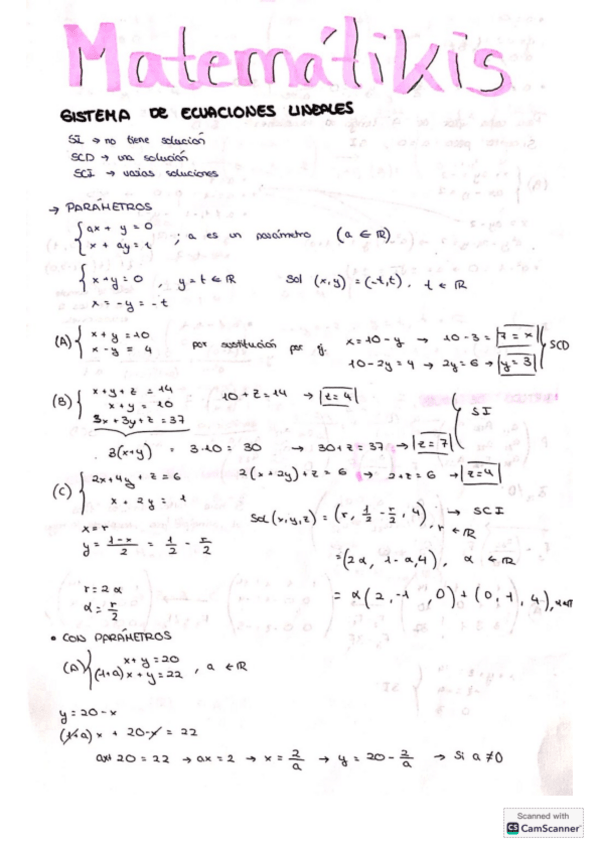 Matemátikis
SISTEMA DE ECUACIONES LINEALES
SI → no tiene solución
SCD → una solución
SCI → varias soluciones
→ PARÁMETROS
{ax + y = 0
{x + ay = 1 ; a es un parámetro (a ∈ ℝ)
{x + y = 0 , y = t ∈ ℝ Sol (x,y) = (-t,t), t ∈ ℝ
x = -y = -t
(A) {x + y = 10
{x - y = 4 por sustitución por ej. x = 10 - y → 10 - 3 = 7 = x
10 - 2y = 4 → 2y = 6 → y = 3 SCD
(B) {x + y + z = 14
{x + y = 10 10 + z = 14 → z = 4
{3x + 3y + z = 37 SI
3(x+y) = 3·10 = 30 → 30 + z = 37 → z = 7
(C) {2x + 4y + z = 6 2(x + 2y) + z = 6 → 2 + z = 6 → z = 4
{x + 2y = 1
x = r Sol (x,y,z) = (r, 1/2 - r/2, 4), r ∈ ℝ → SCI
y = 1-x/2 = 1/2 - r/2
= (2α, 1 - α, 4), α ∈ ℝ
r = 2α
α = r/2 = α(2, -1, 0) + (0, 1, 4), α∈ℝ
• CON PARÁMETROS
(A) {x + y = 20
{(1+a)x + y = 22 , a ∈ ℝ
y = 20 - x
(1+a)x + 20 - x = 22
ax + 20 = 22 → ax = 2 → x = 2/a → y = 20 - 2/a → Si a ≠ 0
Scanned with
CS CamScanner